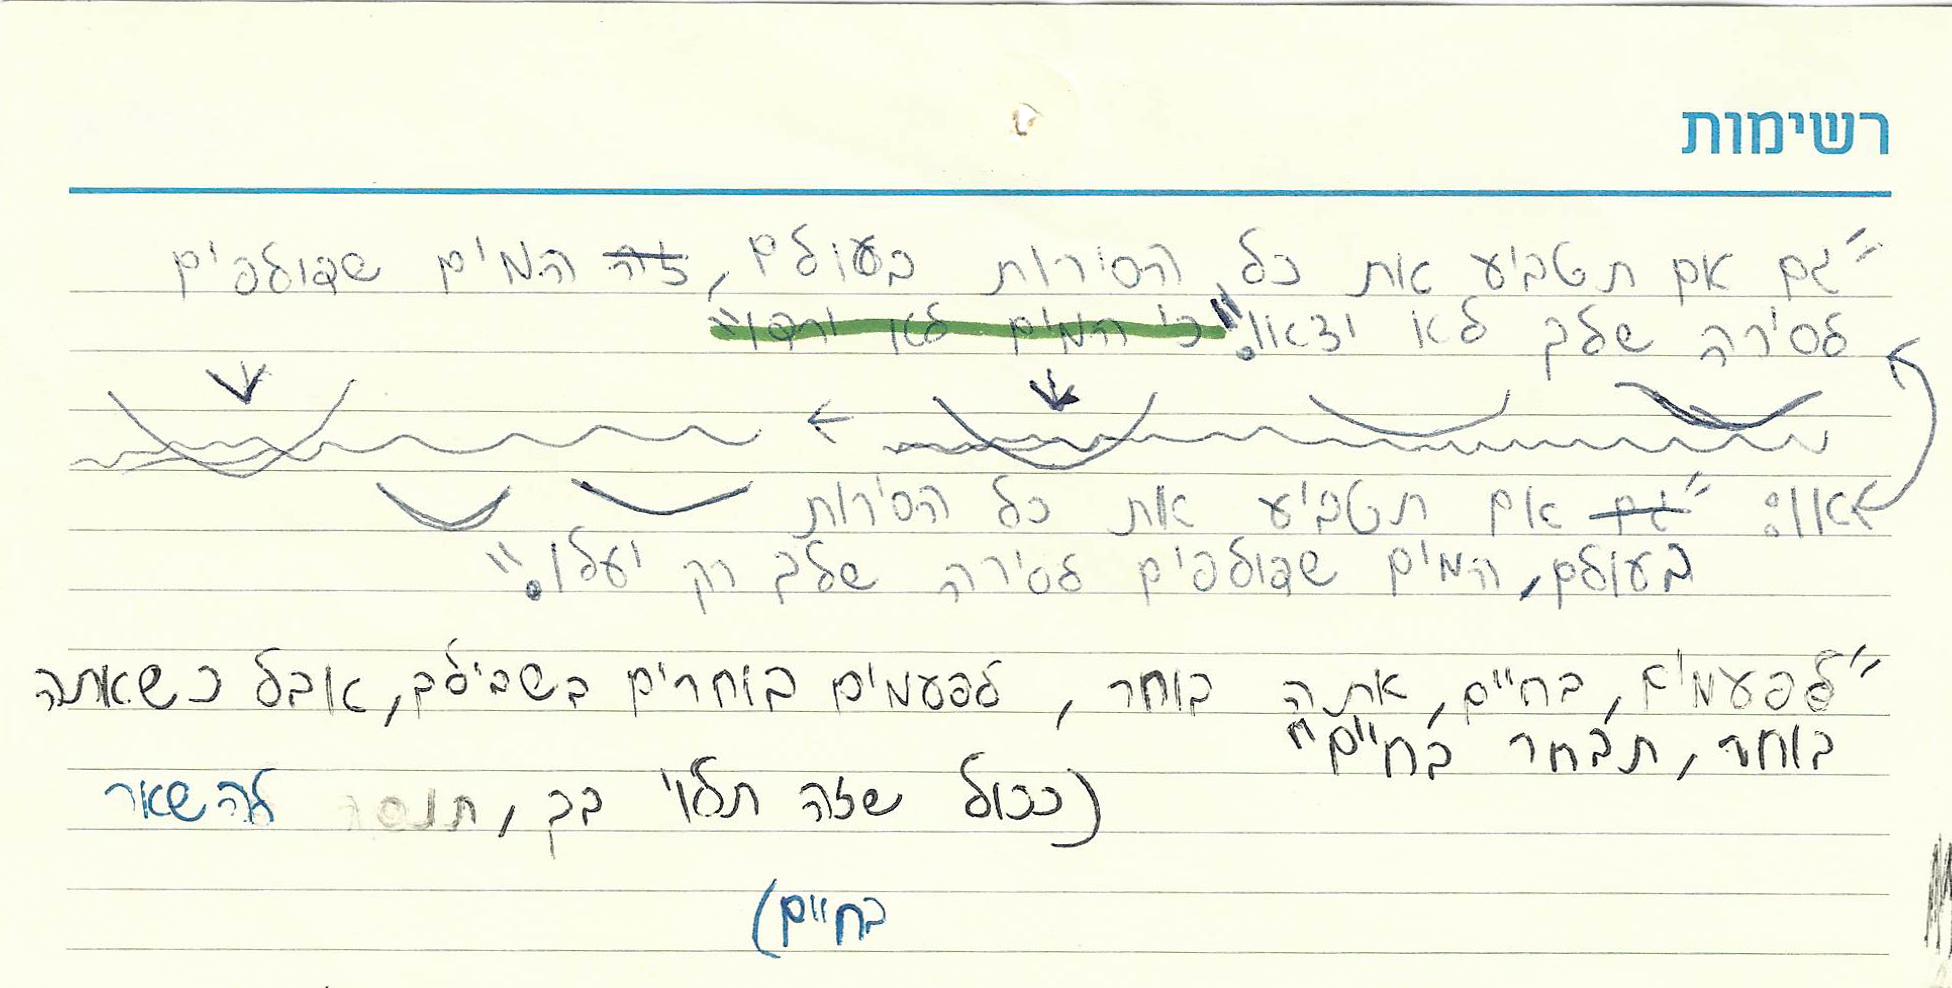 רשימות
"גם אם תטביע את כל הסירות בעולם, זה המים שדולפים
לסירה שלך לא יצאו." כי המים לא ירדו"
או: "גם אם תטביע את כל הסירות
בעולם, המים שדולפים לסירה שלך רק יעלו."
"לפעמים, בחיים, אתה בוחר, לפעמים בוחרים בשבילך, אבל כשאתה
בוחר, תבחר בחיים"
(ככול שזה תלוי בך, תנסה להשאר
בחיים)